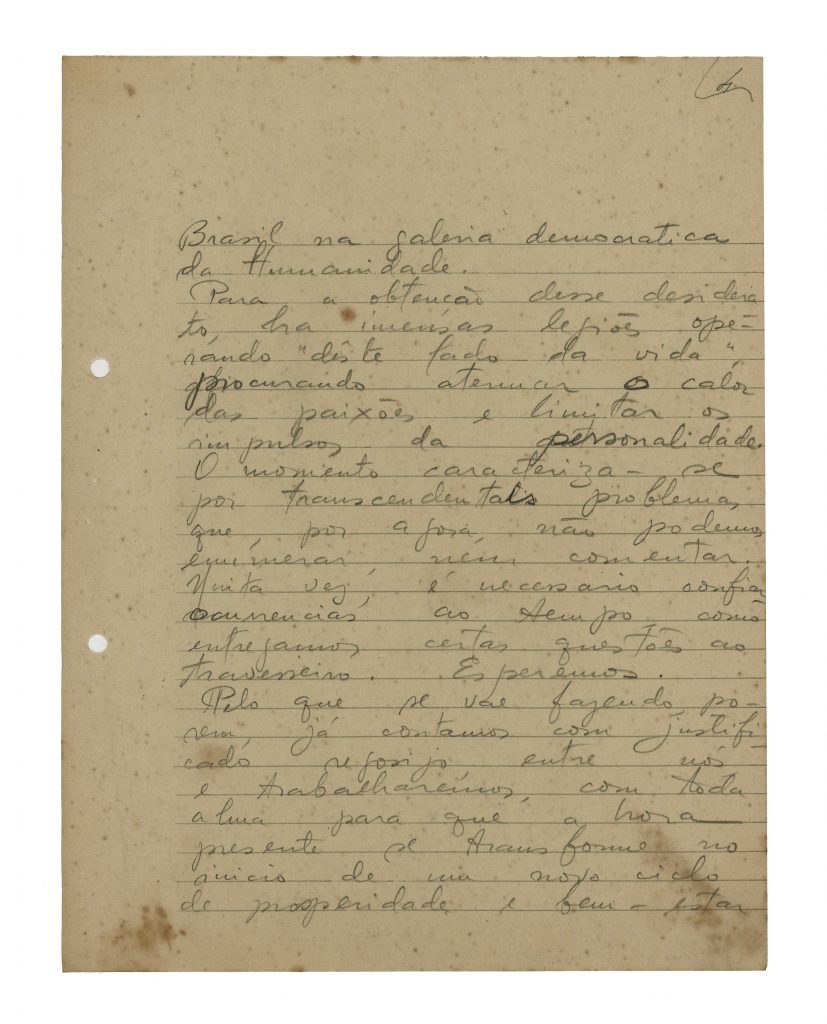 Brasil na galeria democratica
da Humanidade.
Para a obtenção desse desidera
to, ha imensas legiões ope-
rando "dêste lado da vida",
procurando atenuar o calor
das paixões e limitar os
impulsos da personalidade.
O momento carateriza-se
por transcendentais problemas
que, por agora, não podemos
enumerar, nem comentar.
Muita vez, é necessario confiar
ocurrencias ao tempo, como
entregamos certas questões ao
travesseiro. Esperemos.
Pelo que se vae fazendo, po-
rem, já contamos com justifi-
cado regosijo entre nós
e trabalharemos, com toda
alma para que a hora
presente se transforme no
inicio de um novo ciclo
de prosperidade e bem-estar